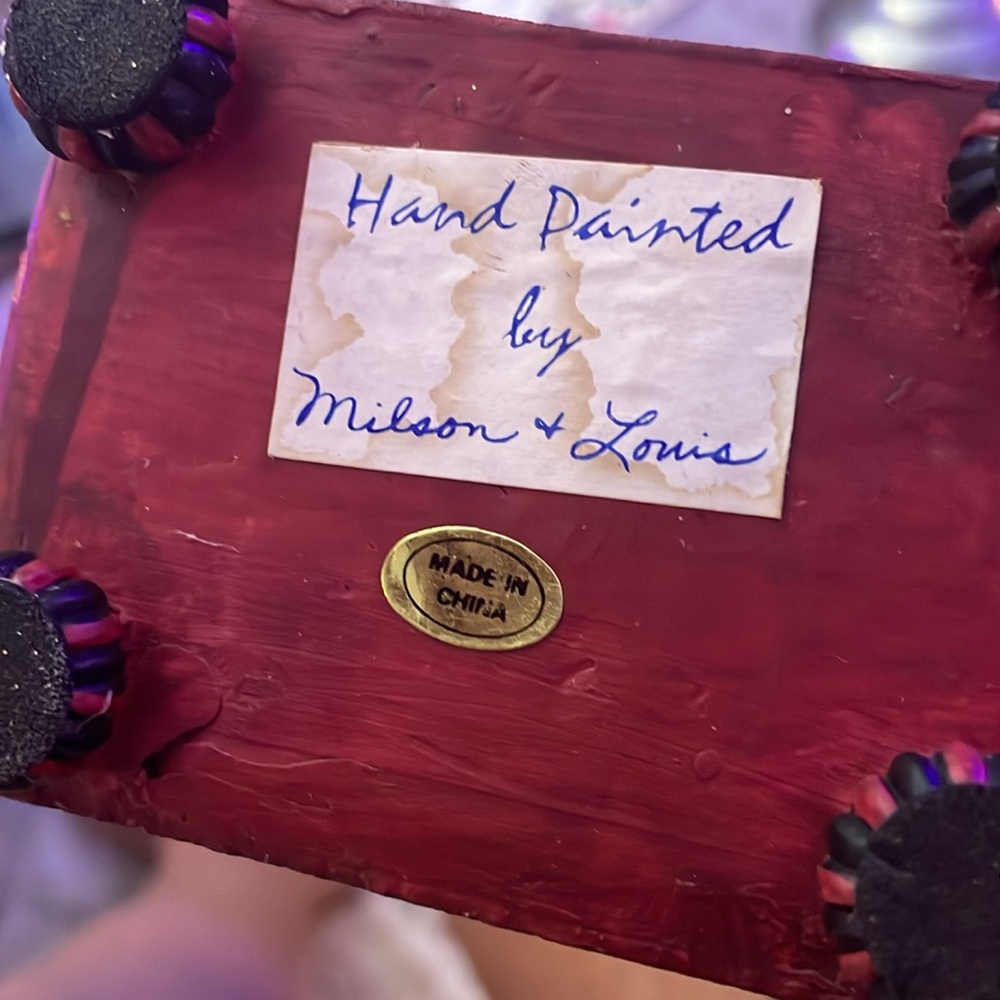 Hand Painted
by
Milson & Louis
MADE IN
CHINA